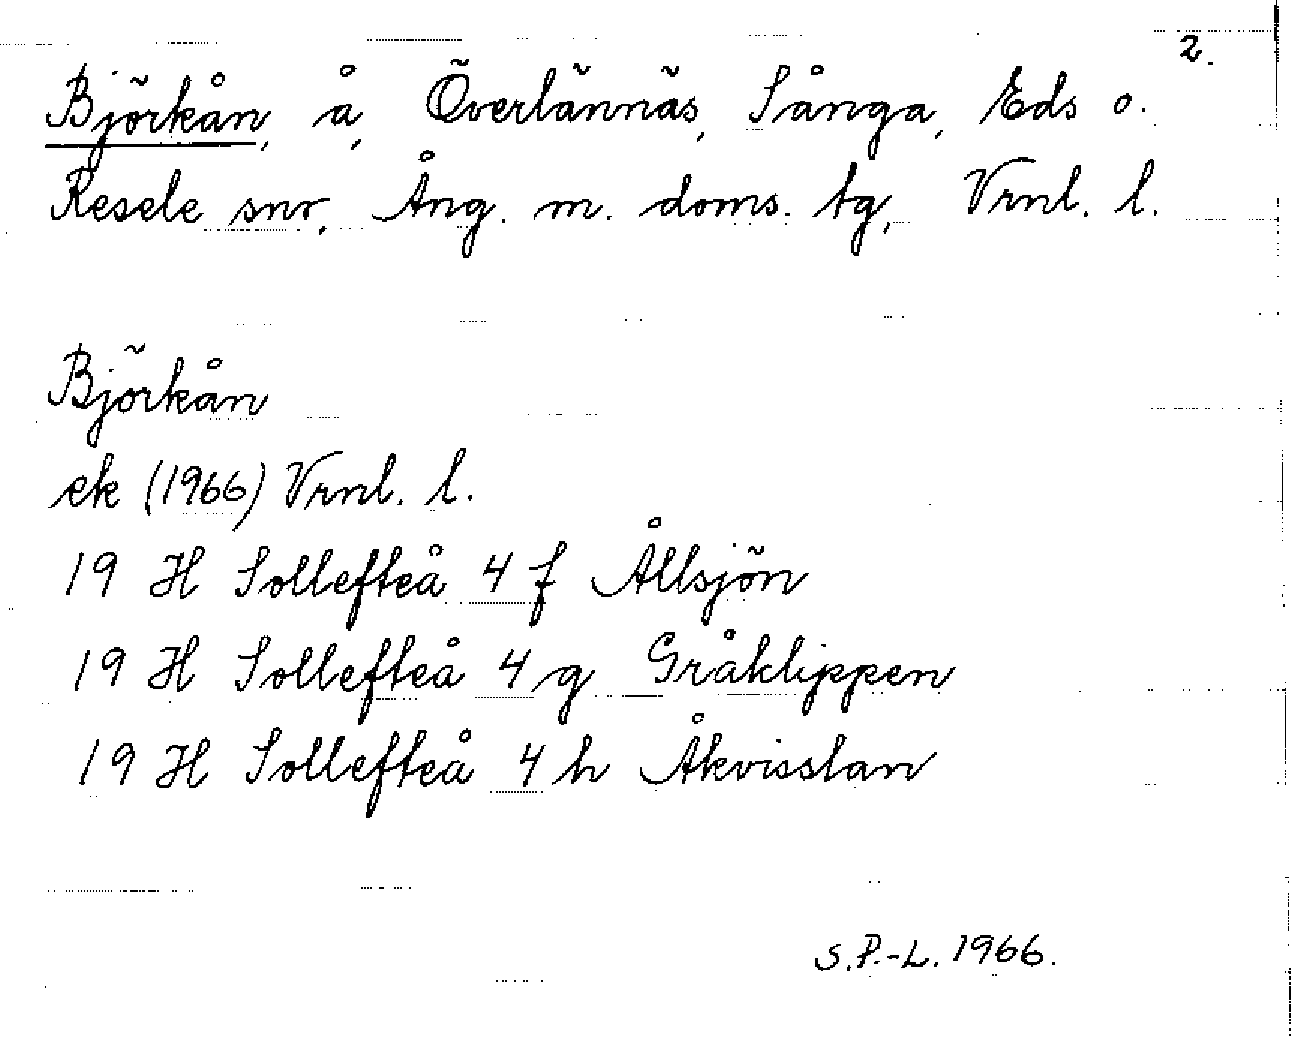 2.
Björkån, å, Överlännäs, Sånga, Eds o.
Resele snr, Ång. m. doms. tg, Vrnl. l.
Björkån
ek (1966) Vrnl. l.
19 H Sollefteå 4 f Ållsjön
19 H Sollefteå 4 g Gråklippen
19 H Sollefteå 4 h Åkvisslan
S.P.-L. 1966.